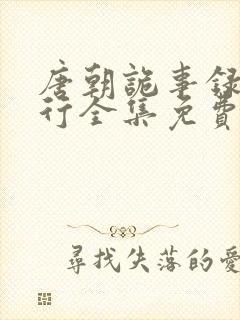 唐朝詭事錄
行全集免費
尋找失落的愛